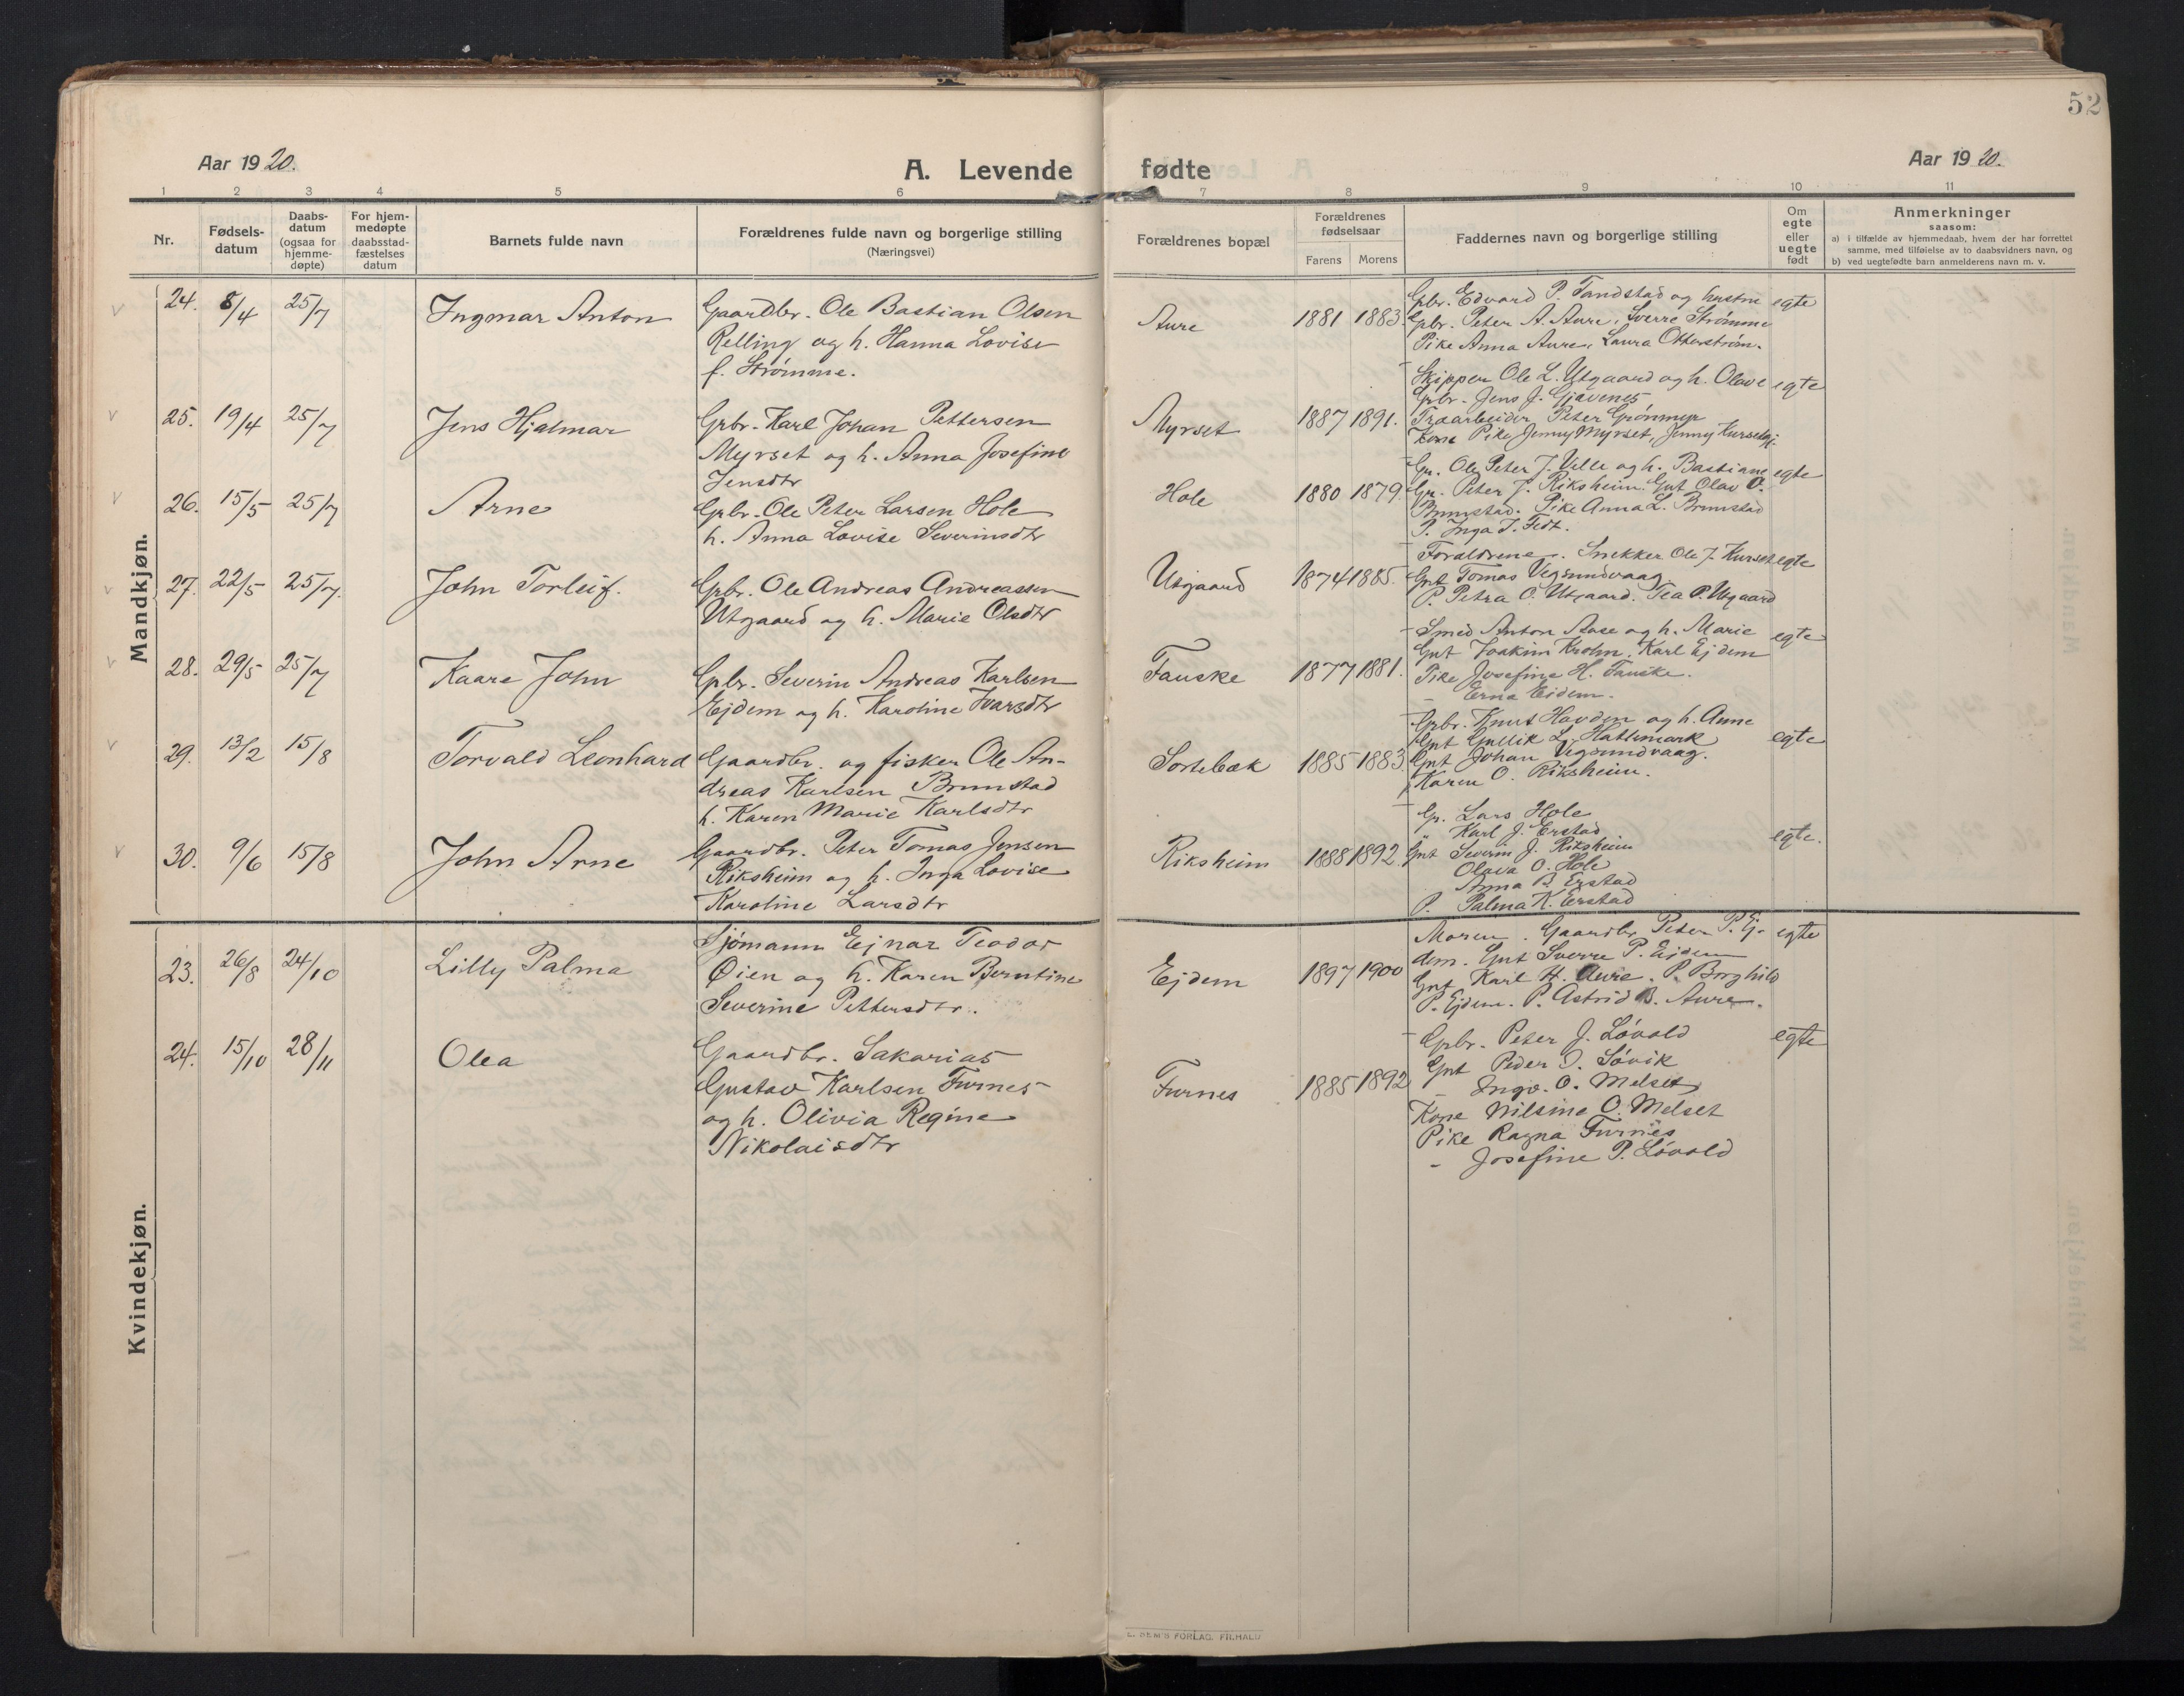 52
Aar 1920.
A. Levende fødte
Aar 1920.
1 2 3 4 5 6 7 8 9 10 11
Nr.
Fødsels-
datum
Daabs-
datum
(ogsaa for
hjemme-
døpte)
For hjem-
medøpte
daabsstad-
fæstelses
datum
Barnets fulde navn
Forældrenes fulde navn og borgerlige stilling
(Næringsvei)
Forældrenes bopæl
Forældrenes
fødselsaar
Farens Morens
Faddernes navn og borgerlige stilling
Om
egte
eller
uegte
født
Anmerkninger
saasom:
a) i tilfælde av hjemmedaab, hvem der har forrettet
samme, med tilføielse av to daabsvidners navn, og
b) ved uegtefødte barn anmelderens navn m. v.
Mandkjøn.
24. 8/4 25/7 Ingmar Anton
Gaardbr. Ole Bastian Olsen
Relling og h. Hanna Lovise
f. Strømme.
Aure 1881 1883.
Gbr. Edvard P. Tandstad og hustru
Gbr. Peter A. Aure, Sverre Strømme
Pike Anna Aure, Laura Otterstrøm.
egte
25. 19/4 25/7 Jens Hjalmar
Grbr. Karl Johan Pettersen
Myrset og h. Anna Josefine
Jensdtr
Myrset 1887 1891.
Skipper Ole L. Utgaard og h. Olave
Grbr. Jens J. Gjævenes
Traarbeider Peter Grønmyr
Kone Pike Jenny Myrset, Jenny Kursetgj.
egte
26. 15/5 25/7 Arne
Grbr. Ole Peter Larsen Hole
h. Anna Lovise Severinsdtr
Hole 1880 1879.
Gr. Ole Peter J. Velle og h. Bastiane
Gr. Peter J. Riksheim. Gut Olav O.
Brunstad. Pike Anna L. Brunstad
P. Inga J. Fedt.
egte
27. 22/5 25/7. John Torleif.
Grbr. Ole Andreas Andreassen
Utgaard og h. Marie Olsdtr
Utgaard 1874 1885.
Foraldrene. Snekker Ole J. Kurset
Gut Tomas Vegsundvaag
P. Petra O. Utgaard. Tea P. Utgaard
egte
28. 29/5 25/7 Kaare John
Gbr. Severin Andreas Karlsen
Ejdem og h. Karoline Ivarsdtr
Fauske 1877 1881.
Smed Anton Aase og h. Marie
Gut Joakim Krohn. Karl Ejdem
Pike Josefine H. Fauske.
- Erna Eidem.
egte
29. 13/2 15/8 Torvald Leonhard
Gaardbr. og fisker Ole An-
dreas Karlsen Brunstad
h. Karen Marie Karlsdtr
Sortebæk 1885 1883.
Gbr. Knut Havden og h. Anne
Gut Gullik L. Hattemark
Gut Johan Vegsundvaag.
Karen O. Riksheim.
egte
30. 9/6 15/8 John Arne
Gaardbr. Peter Tomas Jensen
Riksheim og h. Inga Lovise
Karoline Larsdtr
Riksheim 1888 1892
Gr. Lars Hole
" Karl J. Erstad
Gut Severin J. Riksheim
Olava O. Hole
Anna B. Erstad
P. Palma K. Erstad
egte.
Kvindekjøn.
23. 26/8 24/10 Lilly Palma
Sjømann Ejnar Teodor
Øien og h. Karen Berntine
Severine Pettersdtr.
Ejdem 1897 1900
Moren. Gaardbr. Peter P. Ej-
dem. Gut Sverre P. Eidem
Gut Karl H. Aure. P. Borghild
P. Ejdem. P. Astrid B. Aure.
egte
24. 15/10 28/11 Olea
Gaardbr. Sakarias
Gustav Karlsen Furnes
og h. Olivia Regine
Nikolaisdtr
Furnes 1885 1892
Gbr. Peter J. Løvold
Gut Peder O. Søvik
- Ingv. O. Melset
Kone Nilsine O. Melset
Pike Ragna Furnes
- Josefine P. Løvold
egte
E. SEM'S FORLAG, FR.HALD